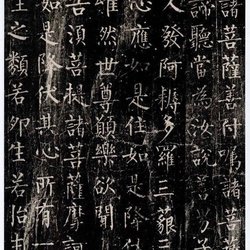 諸菩薩善付囑諸
諦聽當為汝說善男
人發阿耨多羅三藐三
心應如是住如是降伏
唯然世尊願樂欲聞
告須菩提諸菩薩摩訶
如是降伏其心所有一
生之類若卵生若胎